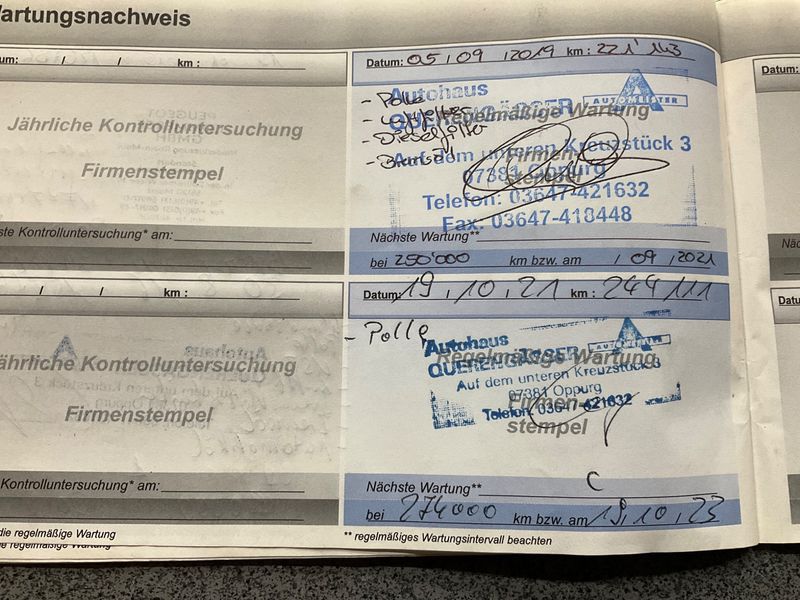 Wartungsnachweis
Datum: 05 / 09 / 2019 km: 221'143
- Polle
- Luftfilter
- Dieselfilter
Autohaus
QUERENGÄSSER
AUTOMEISTER
Auf dem unteren Kreuzstück 3
07381 Oppurg
Telefon: 03647-421632
Fax: 03647-418448
Regelmäßige Wartung
Firmen-
stempel
Nächste Wartung**
bei 250'000 km bzw. am / 09 / 2021
/ / km :
Jährliche Kontrolluntersuchung
Firmenstempel
Kontrolluntersuchung* am:
Datum: 19 . 10 . 21 km : 244 111
- Polle
Autohaus
QUERENGÄSSER
AUTOMEISTER
Auf dem unteren Kreuzstück 3
07381 Oppurg
Telefon: 03647-421632
Regelmäßige Wartung
Firmen-
stempel
Nächste Wartung** C
bei 274000 km bzw. am 19. 10. 23
/ / km :
Jährliche Kontrolluntersuchung
Firmenstempel
Kontrolluntersuchung* am:
die regelmäßige Wartung
** regelmäßiges Wartungsintervall beachten
die regelmäßige Wartung
Datum:
Datum: